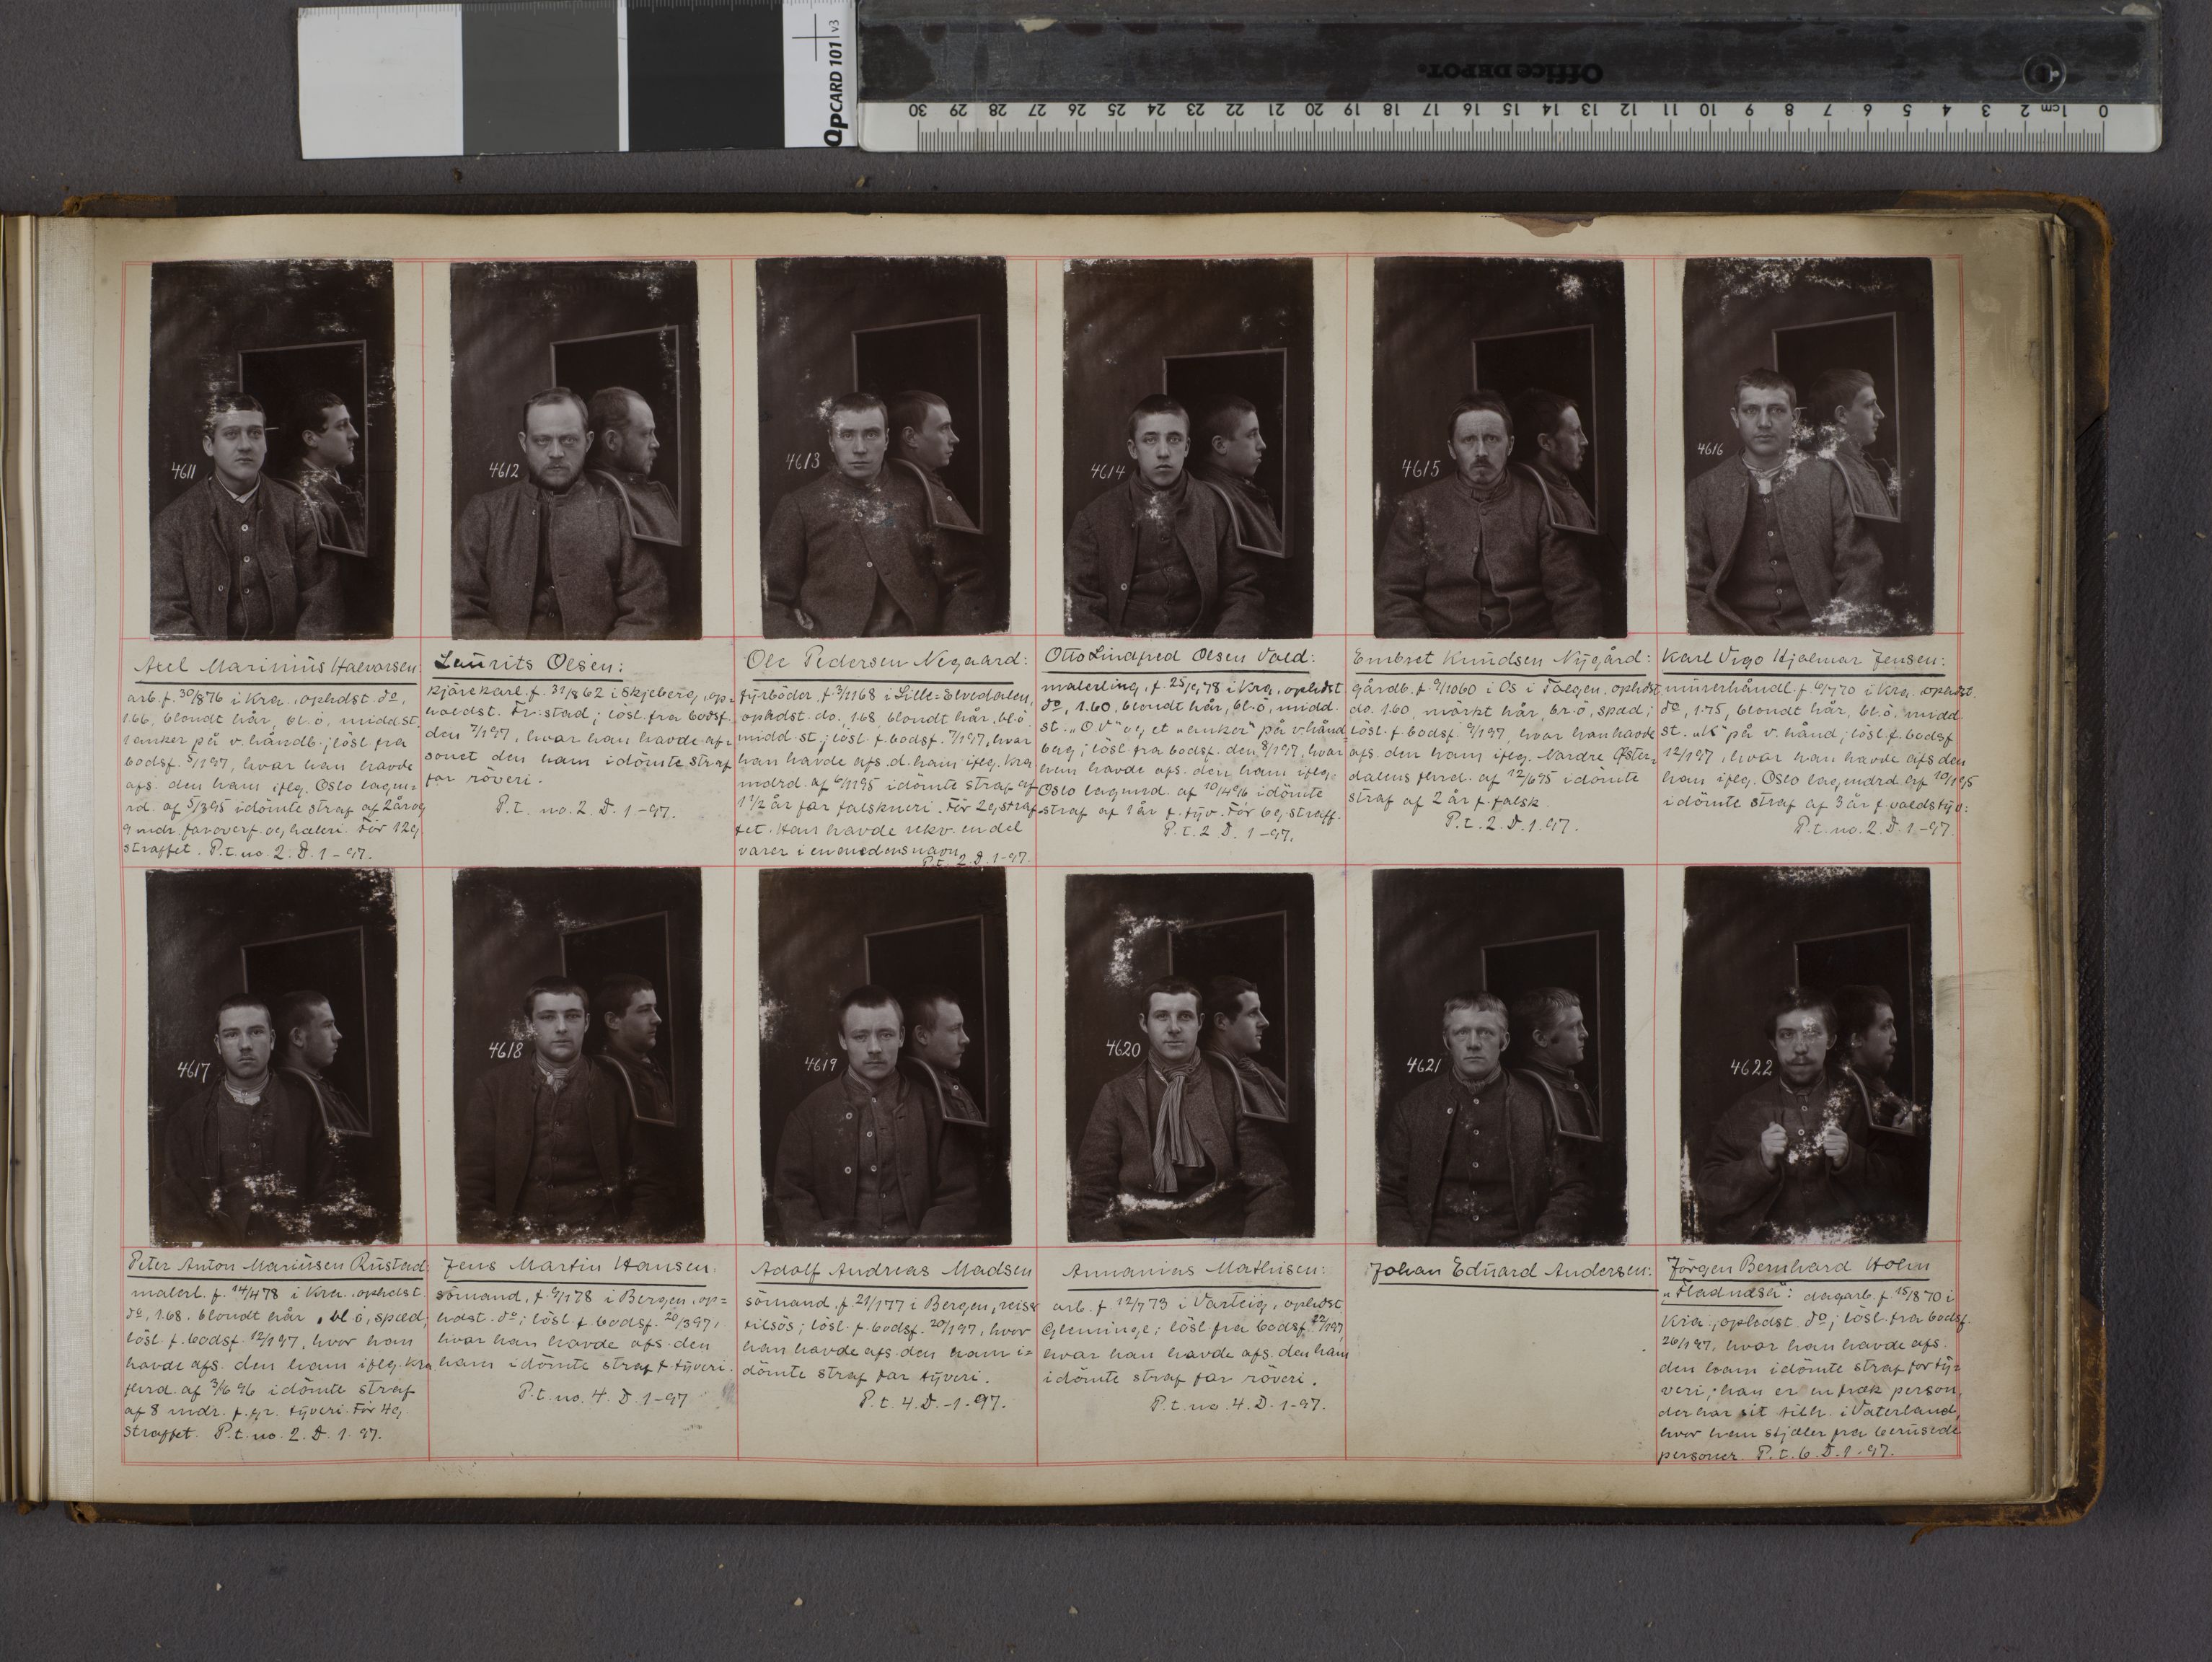 QpCARD 101 v3
Office DEPOT.
0 1 cm 2 3 4 5 6 7 8 9 10 11 12 13 14 15 16 17 18 19 20 21 22 23 24 25 26 27 28 29 30
4611
4612
4613
4614
4615
4616
Axel Marinius Halvorsen:
arb. f. 30/876 i Kra., ophdst. do,
1.66, blondt hår, bl. ö, midd. st.
1 anker på v. håndb.; lösl. fra
bodsf. 5/197, hvor han havde
afs. den ham iflg. Oslo lagm=
rd. af 5/395 idömte straf af 2 år og
9 mdr. for overf. og haleri. För 12 g
straffet. P.t. no. 2. D. 1-97.
Laurits Olsen:
kjörekarl. f. 31/862 i Skjeberg, op=
holdst. Fr:stad; lösl. fra bodsf.
den 7/197, hvor han havde af=
sonet den ham idömte straf
for röveri.
P.t. no. 2. D. 1-97.
Ole Pedersen Negaard:
fyrböder, f. 3/1168 i Lille=Elvedalen,
ophdst. do. 1.68, blondt hår, bl. ö.
midd. st.; lösl. f. bodsf. 7/197, hvor
han havde afs. d. ham iflg. Kra
mdrd. af 6/1195 idömte straf af
1 1/2 år for falskneri. För 2 g. straf=
fet. Han havde rekv. en del
varer i en andens navn.
P.t. 2. D. 1-97.
Otto Lindfred Olsen Vold:
malerling, f. 78 i Kra., ophdst.
do, 1.60, blondt hår, bl. ö, midd.
st. "O.V" og et "anker" på v. hånd=
bag; lösl. fra bodsf. den 8/197, hvor
han havde afs. den ham iflg.
Oslo lagmrd. af 10/496 idömte
straf af 1 år f. tyv. För 6 g. straff.
P.t. 2 D. 1-97.
Embret Knudsen Nygård:
gårdb. f. 9/1060 i Os i Tolgen, ophdst.
do. 1.60, mörkt hår, br. ö, spæd;
lösl. f. bodsf. 9/197, hvor han havde
afs. den ham iflg. Nordre Øster=
dalens hrd. af 12/695 idömte
straf af 2 år f. falsk.
P.t. 2. D. 1. 97.
Karl Vigo Hjalmar Jensen:
murerhåndl. f. 6/770 i Kra. ophdst.
do, 1.75, blondt hår, bl. ö. midd.
st. "K" på v. hånd; lösl. f. bodsf
12/197, hvor han havde afs den
ham iflg. Oslo lagmdrd. af 10/195
idömte straf af 3 år f. voldstyv:
P.t. no. 2. D. 1-97.
4617
4618
4619
4620
4621
4622
Peter Anton Mariusen Rustad:
malerl. f. 14/478 i Kra. ophdst.
do, 1.68, blondt hår, bl ö, spæd;
lösl. f. bodsf. 12/197, hvor han
havde afs. den ham iflg. Kra
hrd. af 3/696 idömte straf
af 8 mdr. f. gr. tyveri. För 4 g.
straffet. P.t. no. 2. D. 1. 97.
Jens Martin Hansen:
sömand, f. 9/178 i Bergen, op=
hdst. do; lösl. f. bodsf. 20/397,
hvor han havde afs. den
ham idömte straf f tyveri.
P.t. no. 4. D. 1-97
Adolf Andreas Madsen
sömand. f. 21/177 i Bergen, reiser
tilsös; lösl. f. bodsf. 20/197, hvor
han havde afs. den ham i=
dömte straf for tyveri.
P.t. 4. D. -1. 97.
Annanias Mathisen:
arb. f. 12/773 i Varteig, ophdst.
Glemminge; lösl fra bodsf. 22/197,
hvor han havde afs. den ham
idömte straf for röveri.
P.t. no. 4. D. 1-97.
Johan Eduard Andersen:
Jörgen Bernhard Holm
"Fladnæsa": dagarb. f. 15/870 i
Kra., ophdst. do; lösl. fra bodsf.
26/197, hvor han havde afs.
den ham idömte straf for ty=
veri; han er en fræk person,
der har sit tilh. i Vaterland,
hvor han stjæler fra berusede
personer. P.t. 6. D. 1-97.